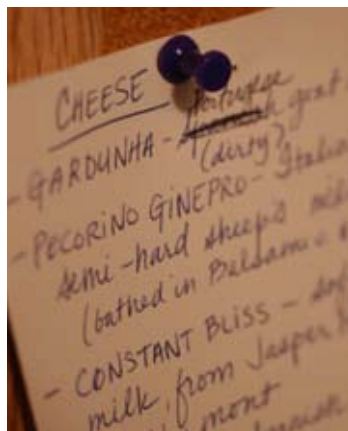 CHEESE
- GARDUNHA - Portuguese goat
(dirty?)
- PECORINO GINEPRO - Italia
semi-hard sheep's mil
(bathed in Balsamic &
- CONSTANT BLISS - sof
milk, from Jasper H
mont